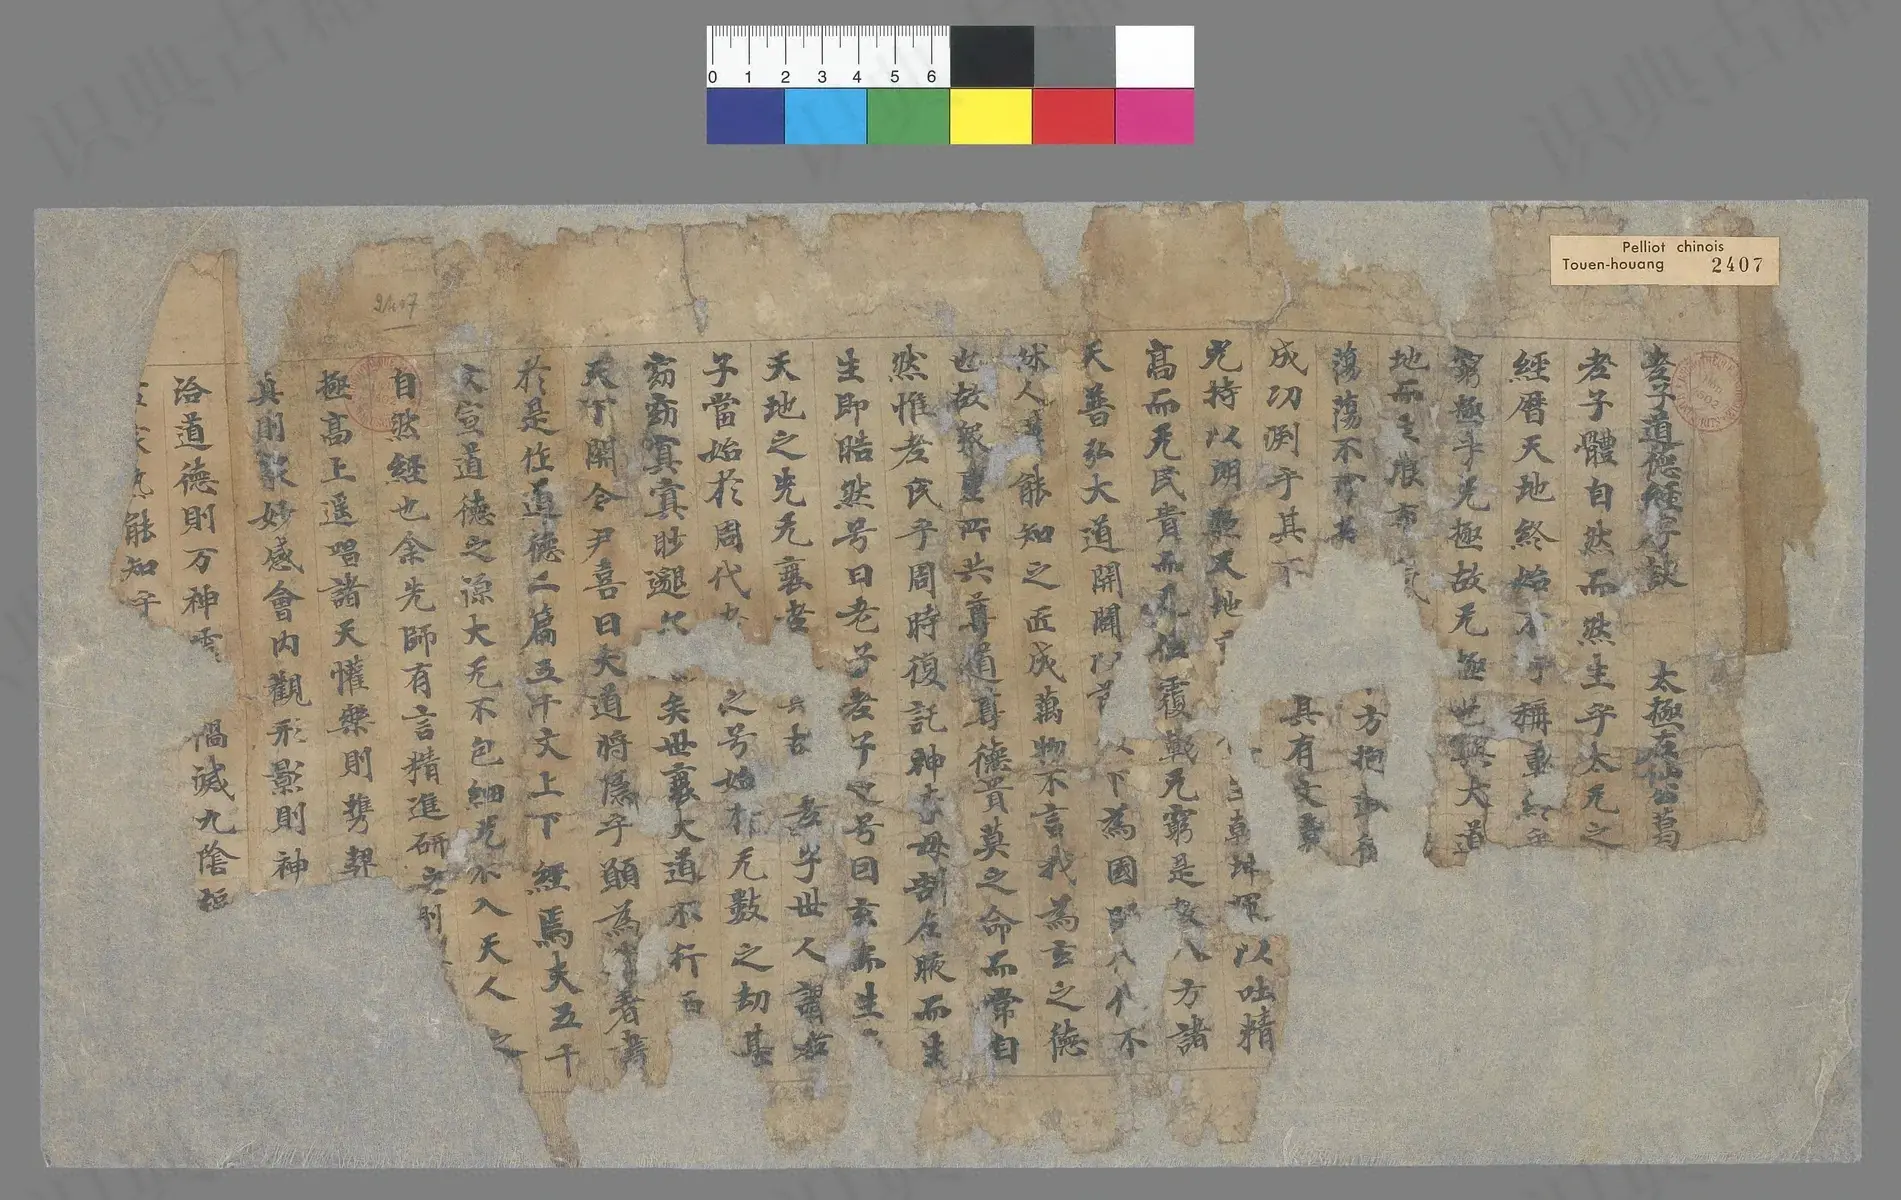 Pelliot chinois
Touen-houang 2407
0 1 2 3 4 5 6
老子道德經序訣 太極左仙公葛
老子體自然而然生乎太无之
經歷天地終始不可稱載終乎
窮極乎无極故无極也與大道
地而立根布氣 方抱
蕩蕩不可名 具有文章
成功淵乎其下
光持以朗照天地 乾坤運以吐精
高而无民貴而无位覆載无窮是教八方諸
天普弘大道開闢以前 下為國師代代不
休人莫能知之匠成萬物不言我為玄之德
也故衆聖所共尊道尊德貴莫之命而常自
然惟老氏乎周時復託神李母剖左腋而生
生即皓然号曰老子老子之号因玄而生
天地之先无衰老 老子世人謂
子當始於周代 之号始於无數之劫甚
窈窈冥冥眇邈久矣世衰大道不行西
天下關令尹喜曰大道將隱乎願為著書
於是作道德二篇五千文上下經焉夫五千
文宣道德之源大无不包細无不入天人之
自然經也余先師有言精進研之則
極高上遥唱諸天懽樂則攜契
真則衆妙感會内觀形影則神
洽道德則万神 禍滅九陰
能知乎
2407